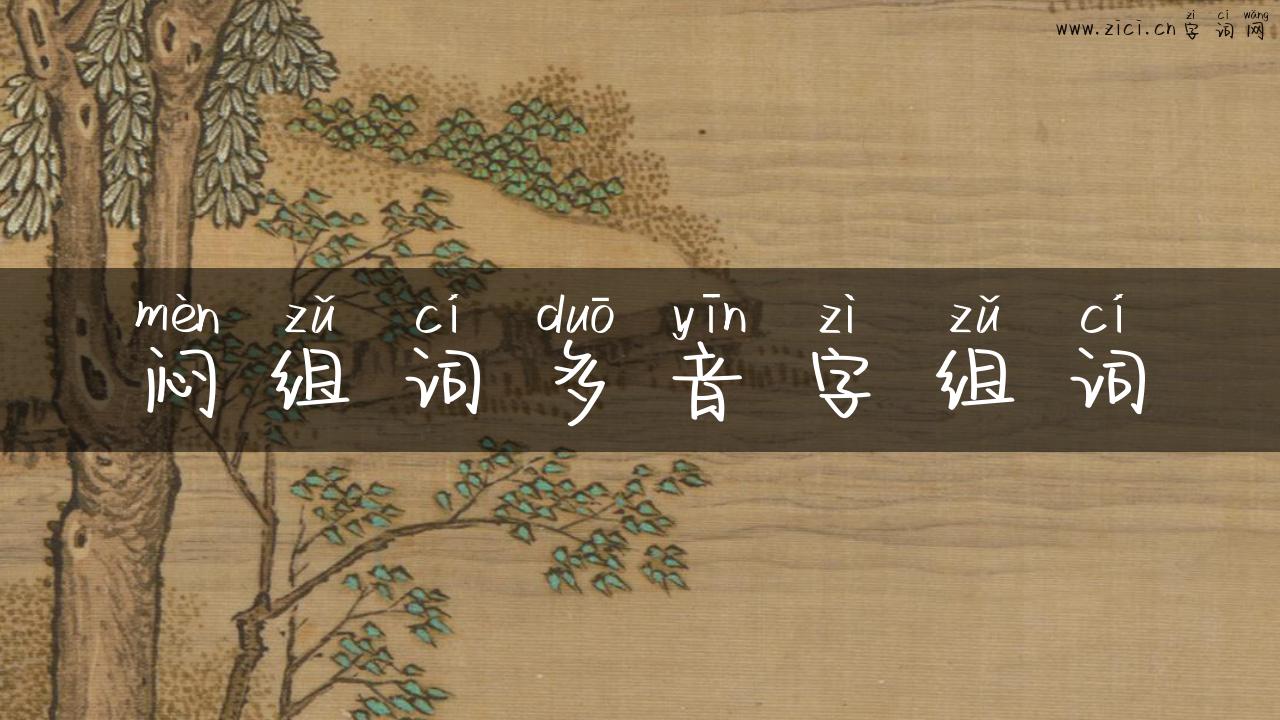 zì cí wǎng
www.zici.cn 字词网
mèn zǔ cí duō yīn zì zǔ cí
闷组词多音字组词